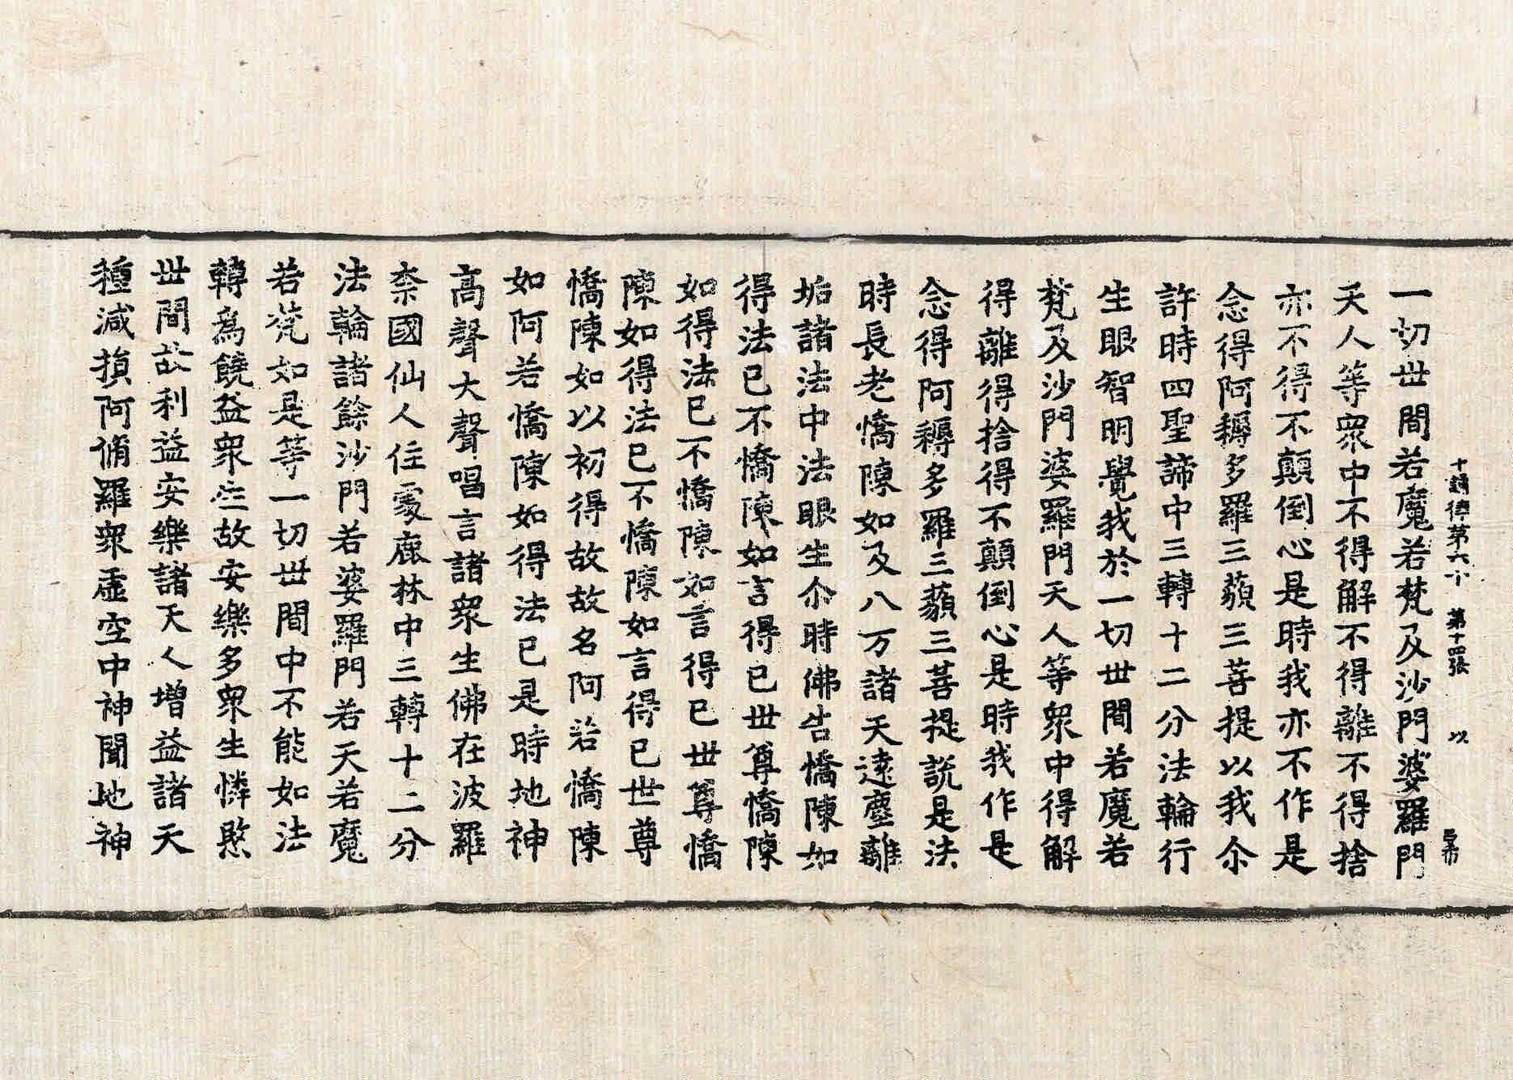 十誦律第六十 第十四張 以
一切世間若魔若梵及沙門婆羅門
天人等眾中不得解不得離不得捨
亦不得不顛倒心是時我亦不作是
念得阿耨多羅三藐三菩提以我尒
許時四聖諦中三轉十二分法輪行
生眼智明覺我於一切世間若魔若
梵及沙門婆羅門天人等眾中得解
得離得捨得不顛倒心是時我作是
念得阿耨多羅三藐三菩提說是法
時長老憍陳如及八万諸天遠塵離
垢諸法中法眼生尒時佛告憍陳如
得法已不憍陳如言得已世尊憍陳
如得法已不憍陳如言得已世尊憍
陳如得法已不憍陳如言得已世尊
憍陳如以初得故故名阿若憍陳
如阿若憍陳如得法已是時地神
高聲大聲唱言諸眾生佛在波羅
柰國仙人住處鹿林中三轉十二分
法輪諸餘沙門若婆羅門若天若魔
若梵如是等一切世間中不能如法
轉為饒益眾生故安樂多眾生憐愍
世間故利益安樂諸天人增益諸天
種減損阿脩羅眾虛空中神聞地神